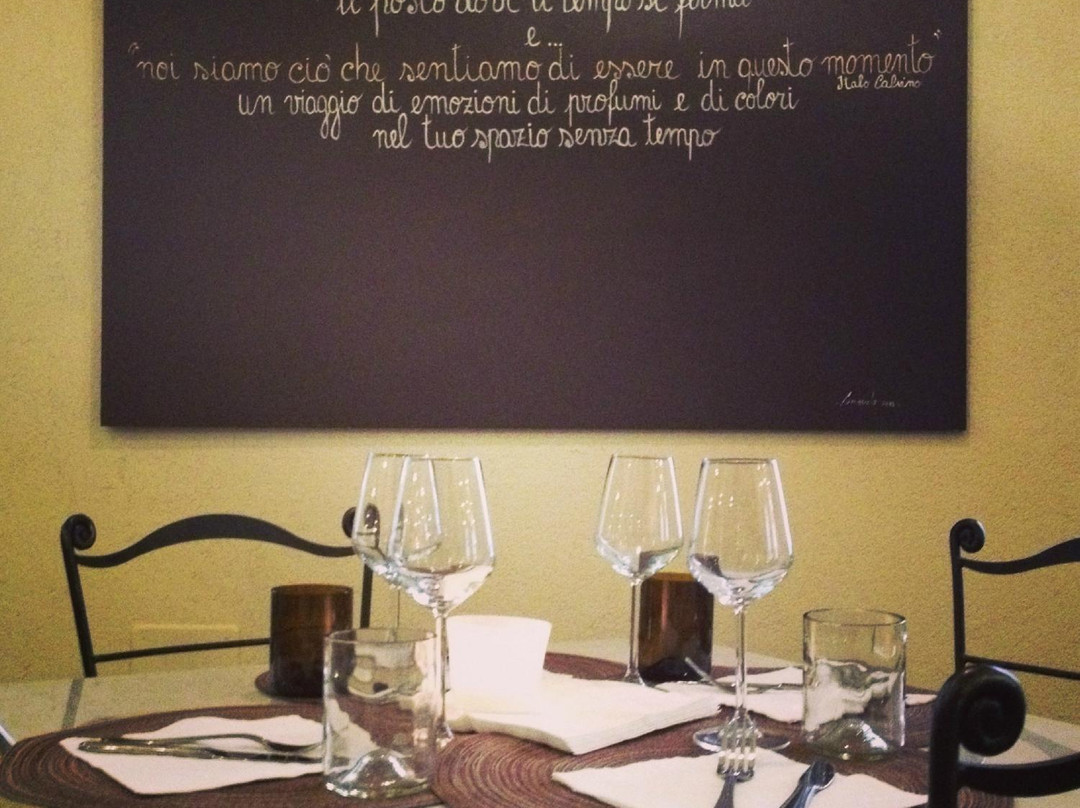 il posto dove il tempo si ferma
e...
"noi siamo ciò che sentiamo di essere in questo momento"
Italo Calvino
un viaggio di emozioni di profumi e di colori
nel tuo spazio senza tempo